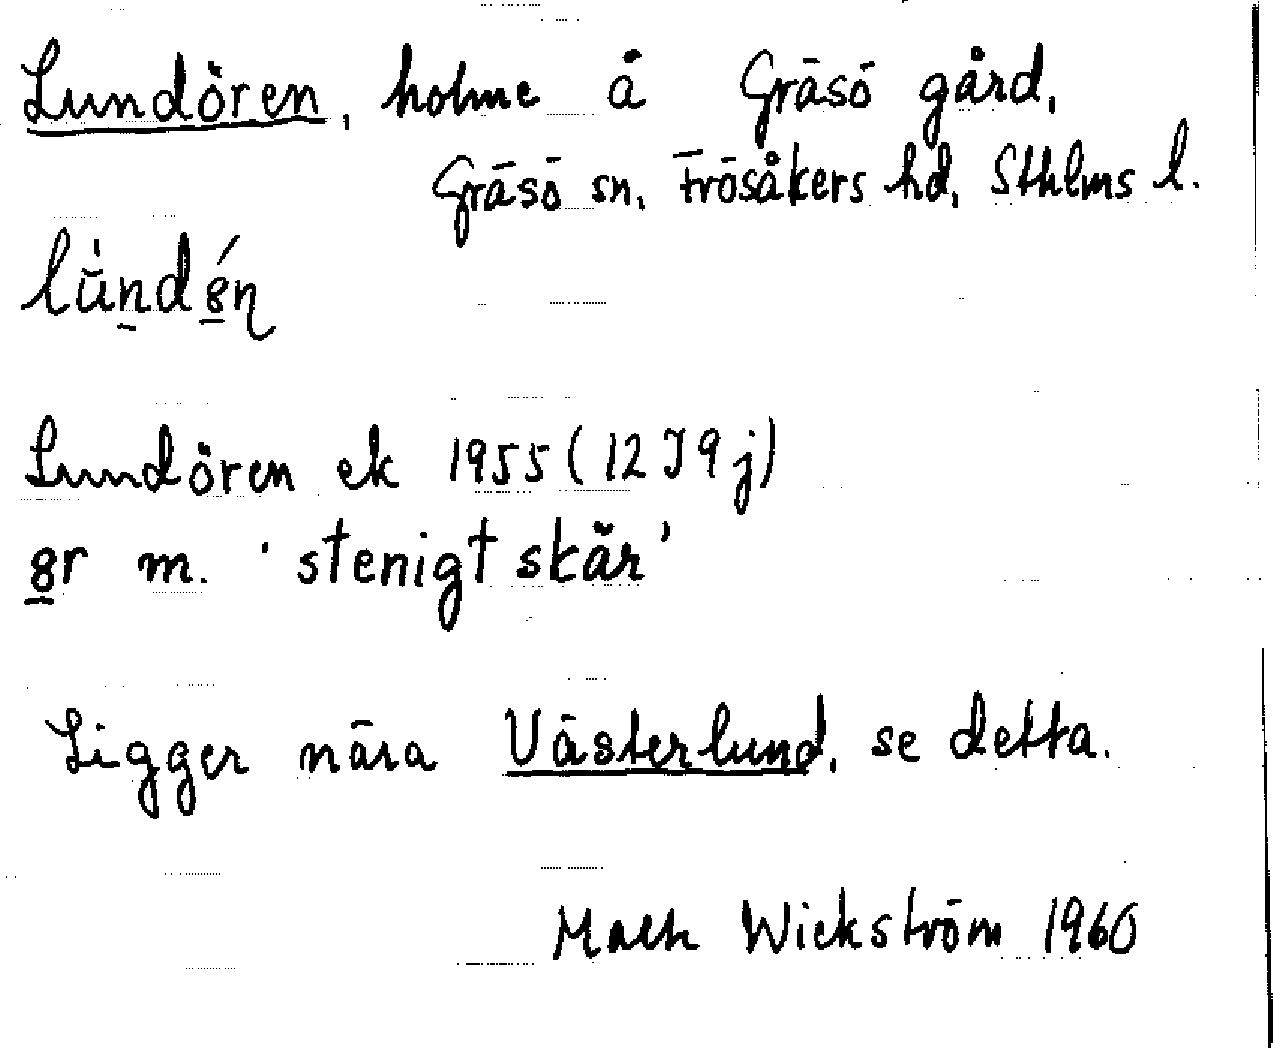 Lundören, holme å Gräsö gård,
Gräsö sn, Frösåkers hd, Sthlms l.
Lundören ek 1955 (12 I 9 j)
m. 'stenigt skär'
Ligger nära Västerlund, se detta.
Wickström 1960